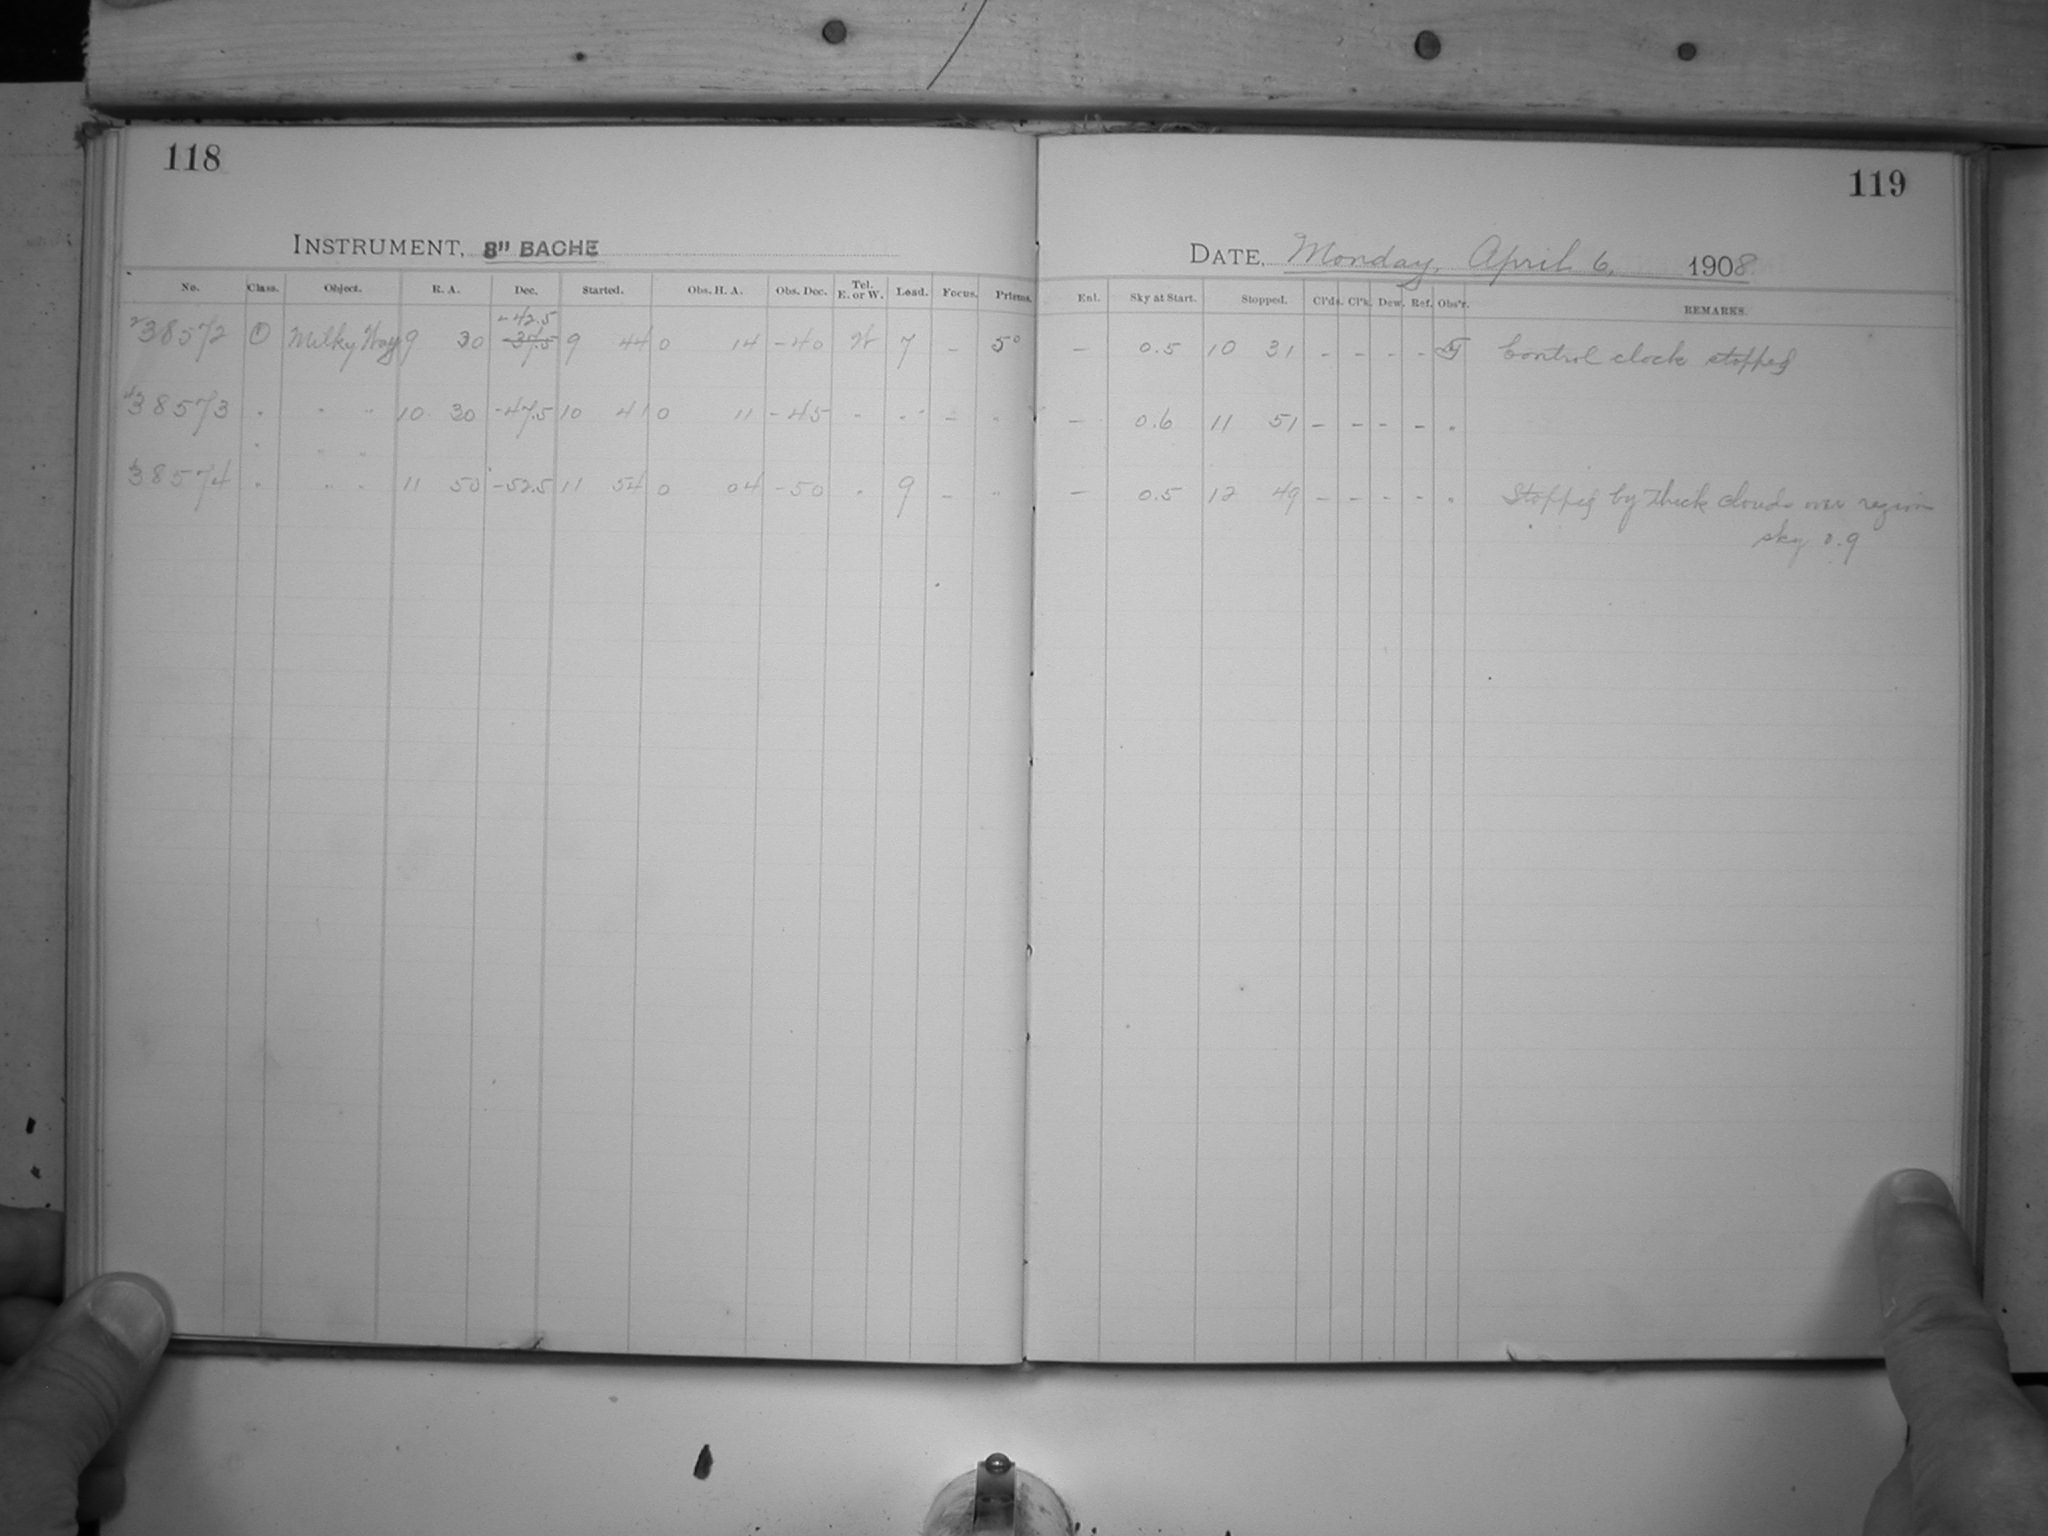 118
119
INSTRUMENT, 8" BACHE
DATE, Monday, April 6, 1908
No. Class. Object. R. A. Dec. Started. Obs. H. A. Obs. Dec. Tel. E. or W. Lead. Focus. Prisms. Enl. Sky at Start. Stopped. Cl'ds. Cl'k. Dew. Ref. Obs'r. REMARKS.
-42.5
38572 ① Milky Way 9 30 -37.5 9 44 0 14 -40 W 7 - 5° - 0.5 10 31 - - - - Control clock stopped
38573 " " " 10 30 -47.5 10 41 0 11 -45 " " - " - 0.6 11 51 - - - - "
" " "
38574 " " " 11 50 -52.5 11 54 0 04 -50 " 9 - " - 0.5 12 49 - - - - " Stopped by thick clouds over region
sky 0.9